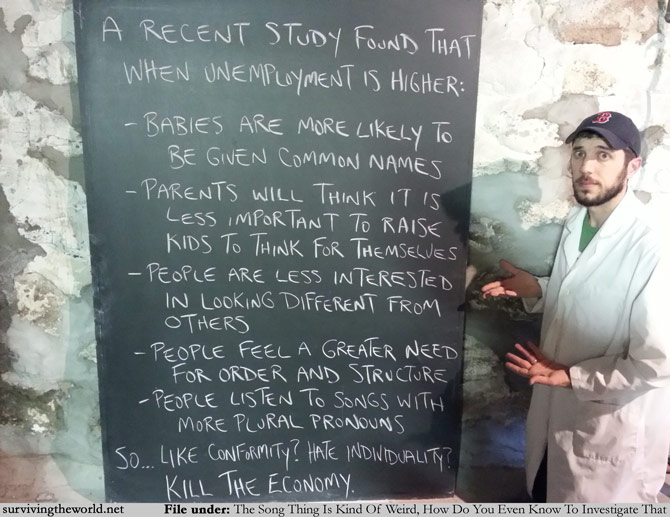 A RECENT STUDY FOUND THAT
WHEN UNEMPLOYMENT IS HIGHER:
- BABIES ARE MORE LIKELY TO
BE GIVEN COMMON NAMES
- PARENTS WILL THINK IT IS
LESS IMPORTANT TO RAISE
KIDS TO THINK FOR THEMSELVES
- PEOPLE ARE LESS INTERESTED
IN LOOKING DIFFERENT FROM
OTHERS
- PEOPLE FEEL A GREATER NEED
FOR ORDER AND STRUCTURE
- PEOPLE LISTEN TO SONGS WITH
MORE PLURAL PRONOUNS
SO... LIKE CONFORMITY? HATE INDIVIDUALITY?
KILL THE ECONOMY.
B
survivingtheworld.net
File under: The Song Thing Is Kind Of Weird, How Do You Even Know To Investigate That